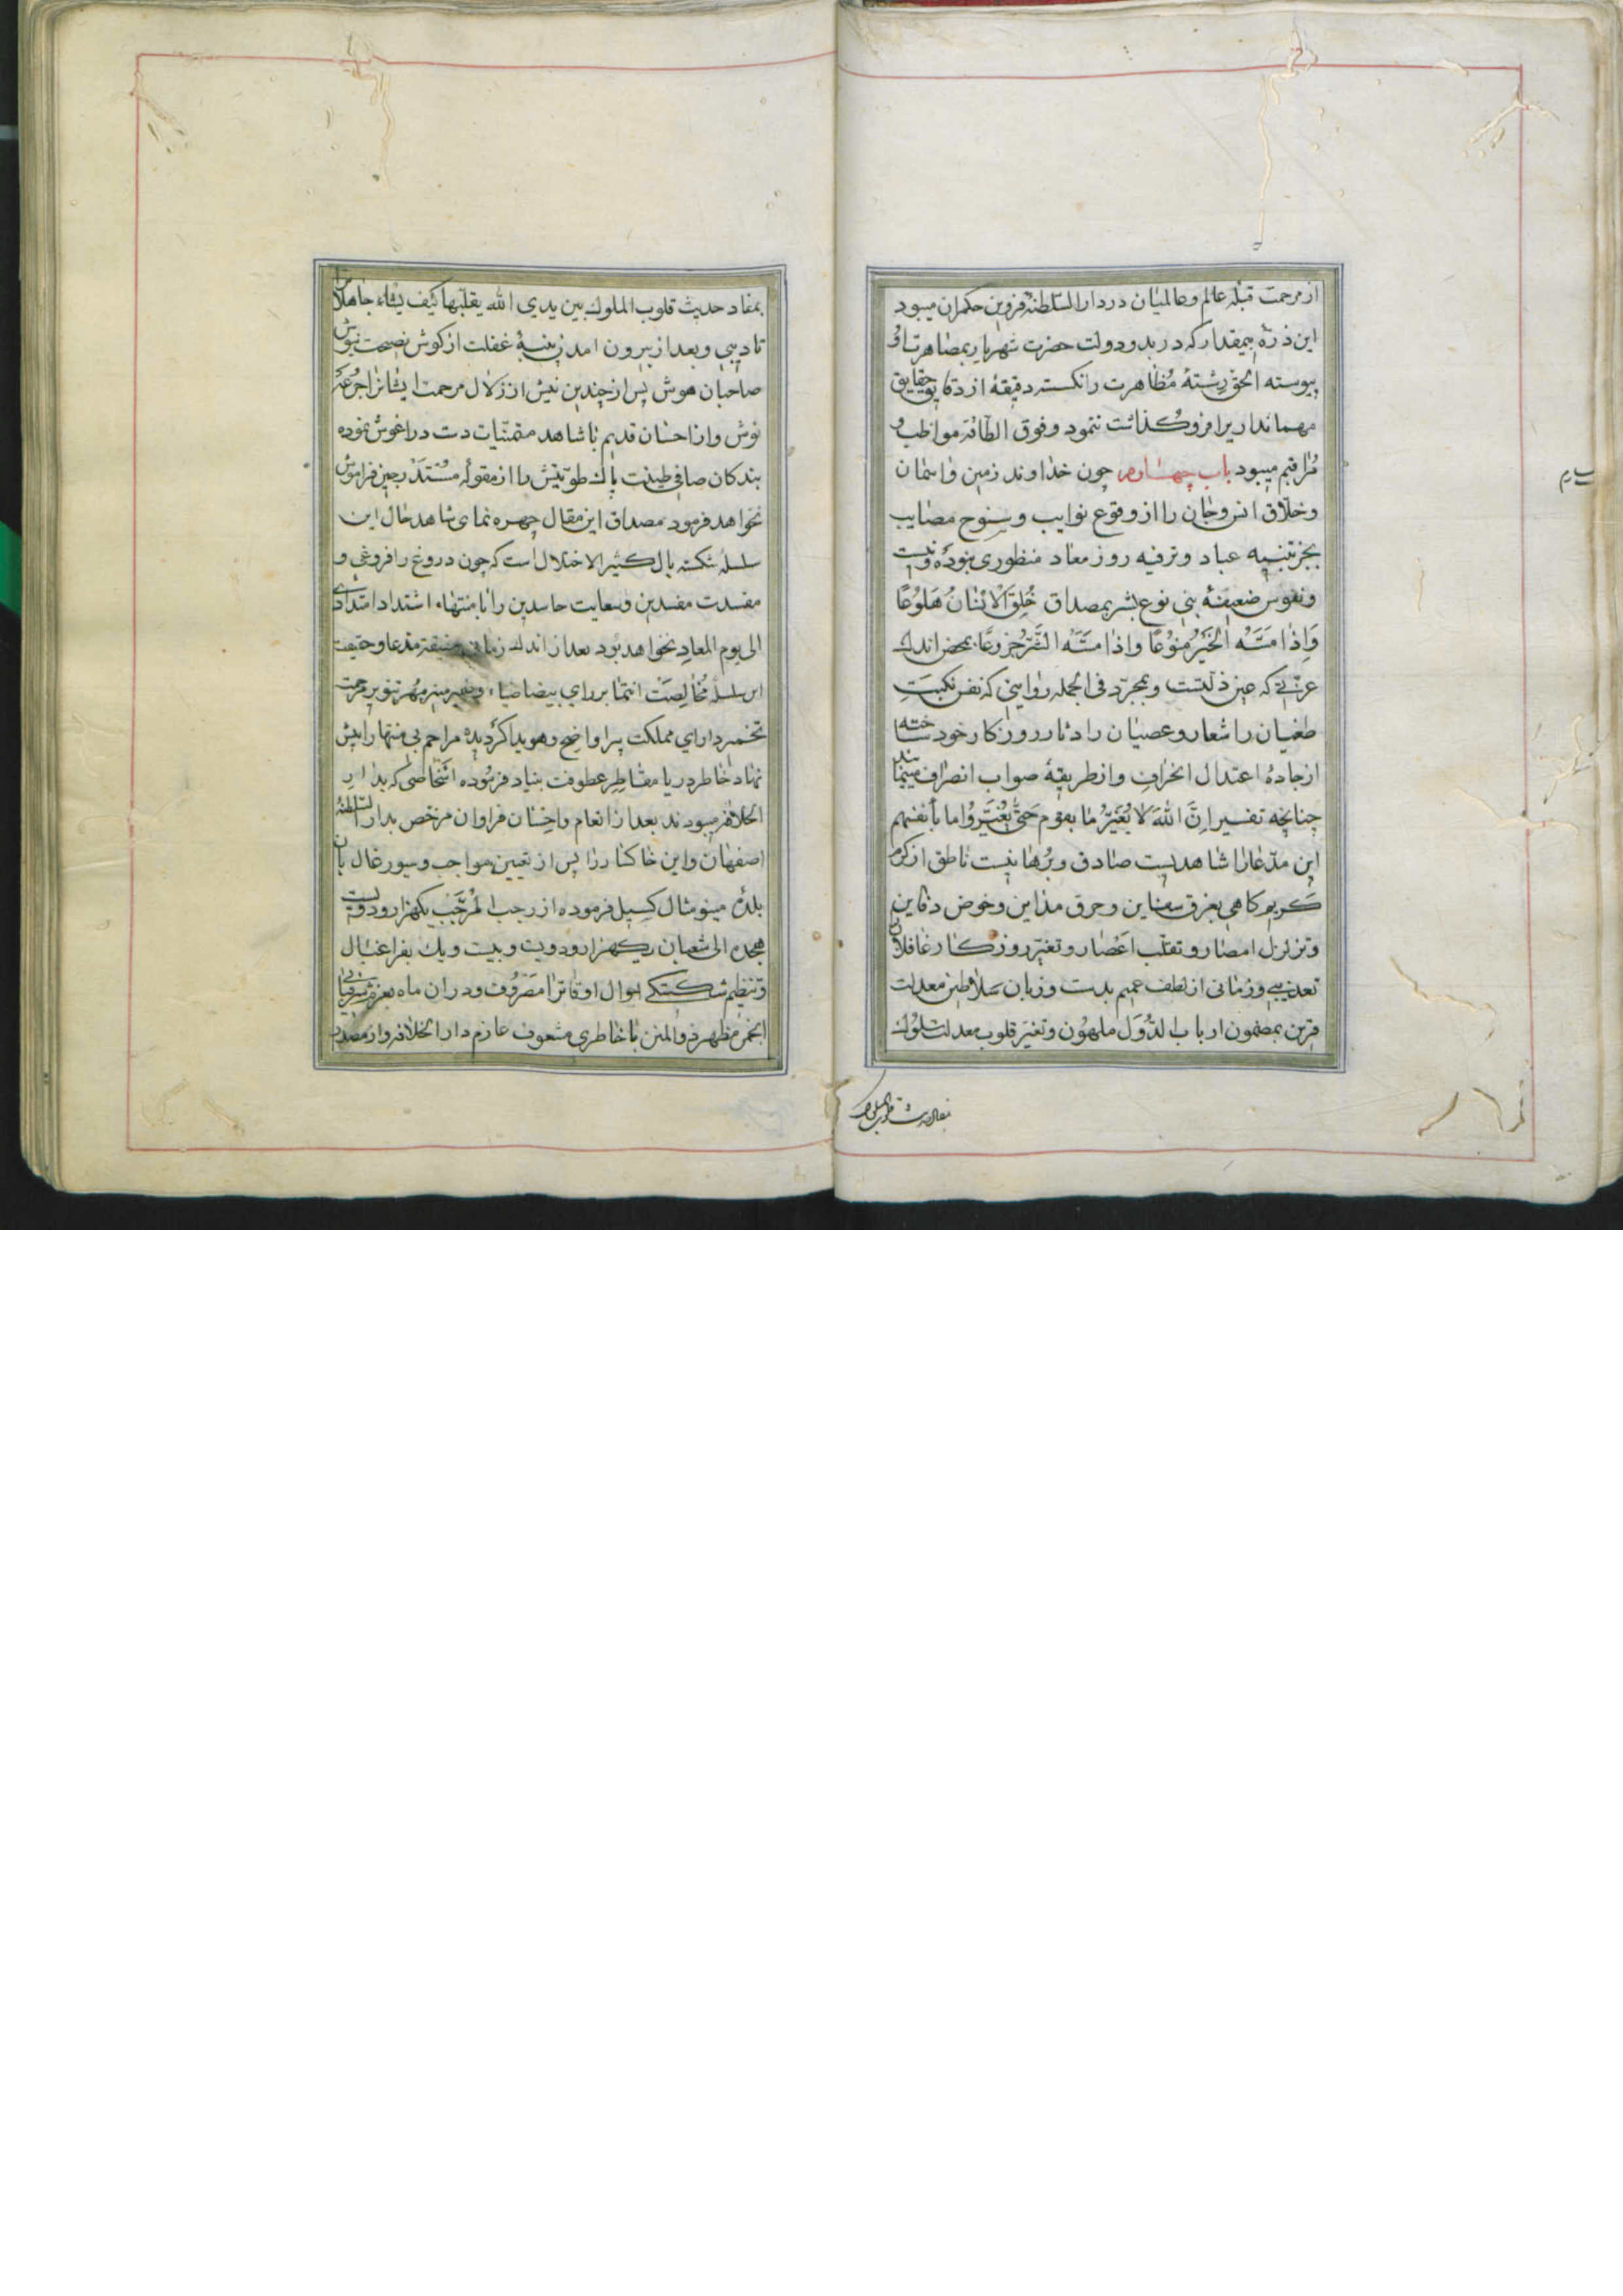 از مرحمت قبلهٔ عالم و عالمیان در دار السلطنهٔ قزوین حکمران میبود
این ذرهٔ بیمقدار که در بدو دولت حضرت شهریار بمصاهرت او
پیوسته الحق رشتهٔ مظاهرت را نکسته دقیقهٔ از دقایق و حقایق
مهمانداریرا فروکذاشت ننمود و فوق الطاقه مواظب و
مراقبم میبود باب چهارم چون خداوند زمین و اسمان
و خلاق انس و جان را از وقوع نوایب و سنوح مصایب
بجز تنبیه عباد و ترفیه روز معاد منظوری نبوده و نیست
و نفوس ضعیفهٔ بنی نوع بشر بمصداق خُلِقَ الْاِنْسٰانُ هَلوُعًا
وَاِذٰا مَسَّهُ الْخَیْرُ مَنوُعًا وَاِذٰا مَسَّهُ الشَّرُّ جَزوُعًا بمحض اندک
عزتی که عین ذلتست و بمجرد فی الجمله روایتی که نفس نکبت
طغیان را شعار و عصیان را دثار روزکار خود ساخته
از جادهٔ اعتدال انحراف و از طریقهٔ صواب انصراف مینمایند
چنانچه تفسیر اِنَّ اللّٰهَ لا یُغَیِّرُ مٰا بِقوم حَتّٰی یُغَیِّرُوا ما بأنفسهم
این مدعارا شاهدیست صادق و برهانیست ناطق از کرم
کریم کاهی بغرق سفاین و حرق مداین و خوض دفاین
و تزلزل امصار و تقلب اعصار و تغیر روزکار غافلانرا
تعذیبی و زمانی از لطف عمیم بدست و زبان سلاطین معدلت
قرین بمضمون ارباب الدول ملهمون و تغیر قلوب معدلت سلوک
بمفاد حدیث قلوب الملوک
بمفاد حدیث قلوب الملوک بین یدی الله یقلبها کیف یشاء جاهلانرا
تادیبی و بعد از بیرون امدن پنبهٔ غفلت از کوش نصیحت نیوش
صاحبان هوش پس از چندین نیش از زلال مرحمت ایشانرا جرعهٔ
نوش و از احسان قدیم با شاهد متمنیات دست در اغوش نموده
بندکان صافی طینت پاک طویتش را از مقولهٔ مستدرجین فراموش
نخواهد فرمود مصداق این مقال چهره نمای شاهد حال این
سلسلهٔ شکسته بال کثیر الاختلال است که چون دروغ را فروغی و
مفسدت مفسدین و سعایت حاسدین را بامنتهاء اشتداد امتدادی
الی یوم المعاد نخواهد بود بعد از اندک زمانی حقیقة مدعا و حقیقت
این سلسلهٔ مخالصت انتما بر رای بیضا ضیاء و ضمیر منیر مهر تنویر مرحمت
تخمیر دارای مملکت پیرا واضح و هویدا کردیده مراحم بی منتها را پیش
نهاد خاطر دریا مقاطر عطوفت بنیاد فرموده اشخاصی که بدار
الخلافه میبودند بعد از انعام و احسان فراوان مرخص بدار السلطنهٔ
اصفهان و این خاکسار را پس از تعیین مواجب و سیورغال بان
بلدهٔ مینو مثال کسیل فرموده از رجب المرجب یکهزار و دویست
هجده الی شعبان یکهزار و دویست و بیست و یک بفراغبال
و تنظیم شکستکی احوال اوقاترا مصروف و در ان ماه بعزم شرفیابی
انجمن مظهر ذو المنن با خاطری مشعوف عازم دار الخلافه و از مصدر